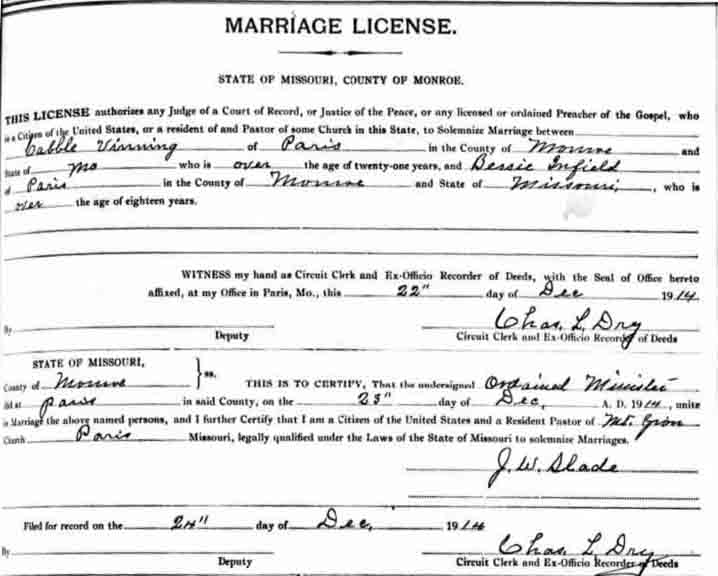 MARRIAGE LICENSE.
STATE OF MISSOURI, COUNTY OF MONROE.
THIS LICENSE authorizes any Judge of a Court of Record, or Justice of the Peace, or any licensed or ordained Preacher of the Gospel, who
is a Citizen of the United States, or a resident of and Pastor of some Church in this State, to Solemnize Marriage between
Cabble Vinning of Paris in the County of Monroe and
State of Mo who is over the age of twenty-one years, and Bessie Infield
of Paris in the County of Monroe and State of Missouri, who is
over the age of eighteen years.
WITNESS my hand as Circuit Clerk and Ex-Officio Recorder of Deeds, with the Seal of Office hereto
affixed, at my Office in Paris, Mo., this 22" day of Dec 1914
By Chas. L. Dry
Deputy Circuit Clerk and Ex-Officio Recorder of Deeds
STATE OF MISSOURI,
County of Monroe ss. THIS IS TO CERTIFY, That the undersigned Ordained Minister
did at Paris in said County, on the 23" day of Dec, A. D. 1914, unite
in Marriage the above named persons, and I further Certify that I am a Citizen of the United States and a Resident Pastor of Mt. Zion
Church Paris Missouri, legally qualified under the Laws of the State of Missouri to solemnize Marriages.
J. W. Slade
Filed for record on the 24" day of Dec, 1914
By Chas. L. Dry
Deputy Circuit Clerk and Ex-Officio Recorder of Deeds